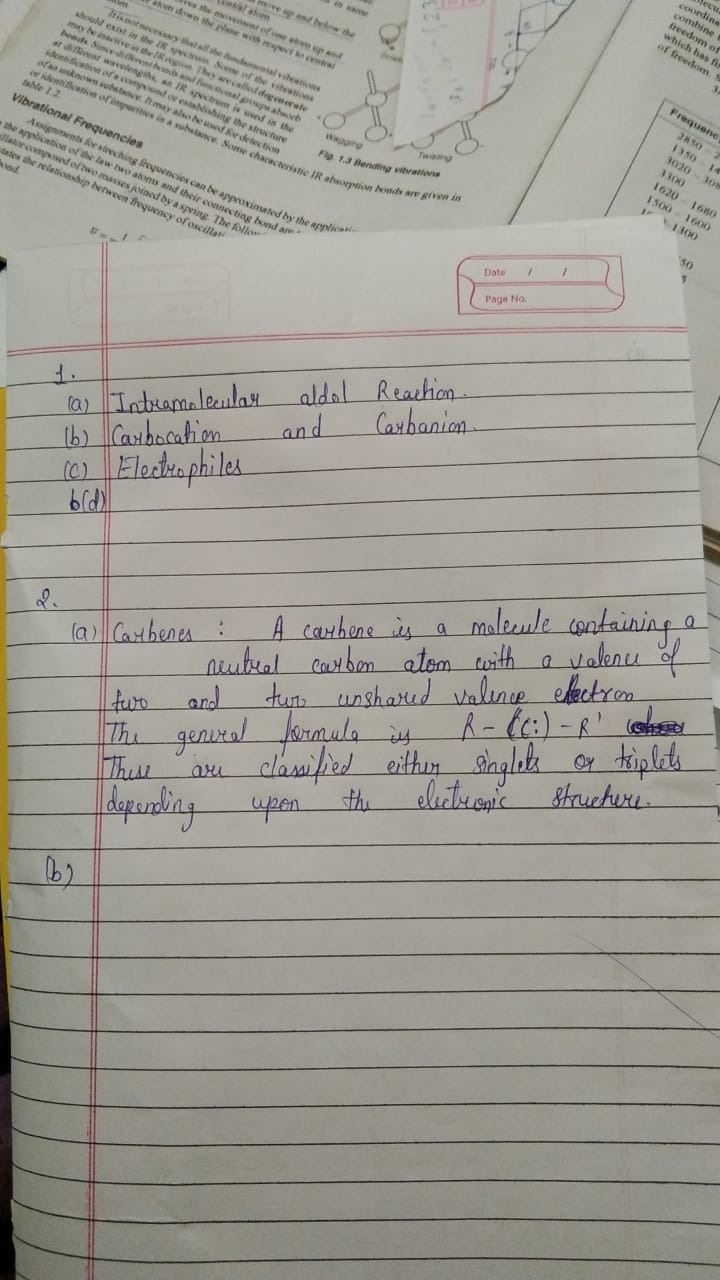 ves the movement of one atom up and
atom down the plane with respect to central
It is not necessary that all the fundamental vibrations
should exist in the IR spectrum. Some of the vibrations
may be inactive in the IR region. They are called degenerate
bonds. Since different bonds and functional groups absorb
at different wavelengths, an IR spectrum is used in the
identification of a compound or establishing the structure
of an unknown substance. It may also be used for detection
or identification of impurities in a substance. Some characteristic IR absorption bonds are given in
table 1.2.
Wagging
Twisting
Fig. 1.3 Bending vibrations
Vibrational Frequencies
Assignments for streching frequencies can be approximated by the
the application of the law two atoms and their connecting bond are
composed of two masses joined by a spring. The
the relationship between frequency of
combine
freedom of
which has
of freedom.
2850
1350
3020
3300
1620 - 1680
1500 - 1600
1300
Date / /
Page No.
1.
(a) Intramolecular aldol Reaction.
(b) Carbocation and Carbanion.
(c) Electrophiles
b(d)
2.
(a) Carbenes : A carbene is a molecule containing a
neutral carbon atom with a valence of
two and two unshared valence electron
The general formula is R - (C:) - R'
These are classified either singlets or triplets
depending upon the electronic structure.
(b)